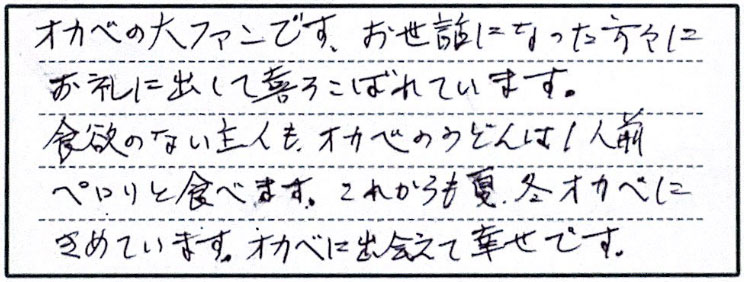 オカベの大ファンです、お世話になった方々に
お礼に出して喜ろこばれています。
食欲のない主人も、オカベのうどんは1人前
ペロリと食べます。これからも夏、冬オカベに
きめています。オカベに出会えて幸せです。